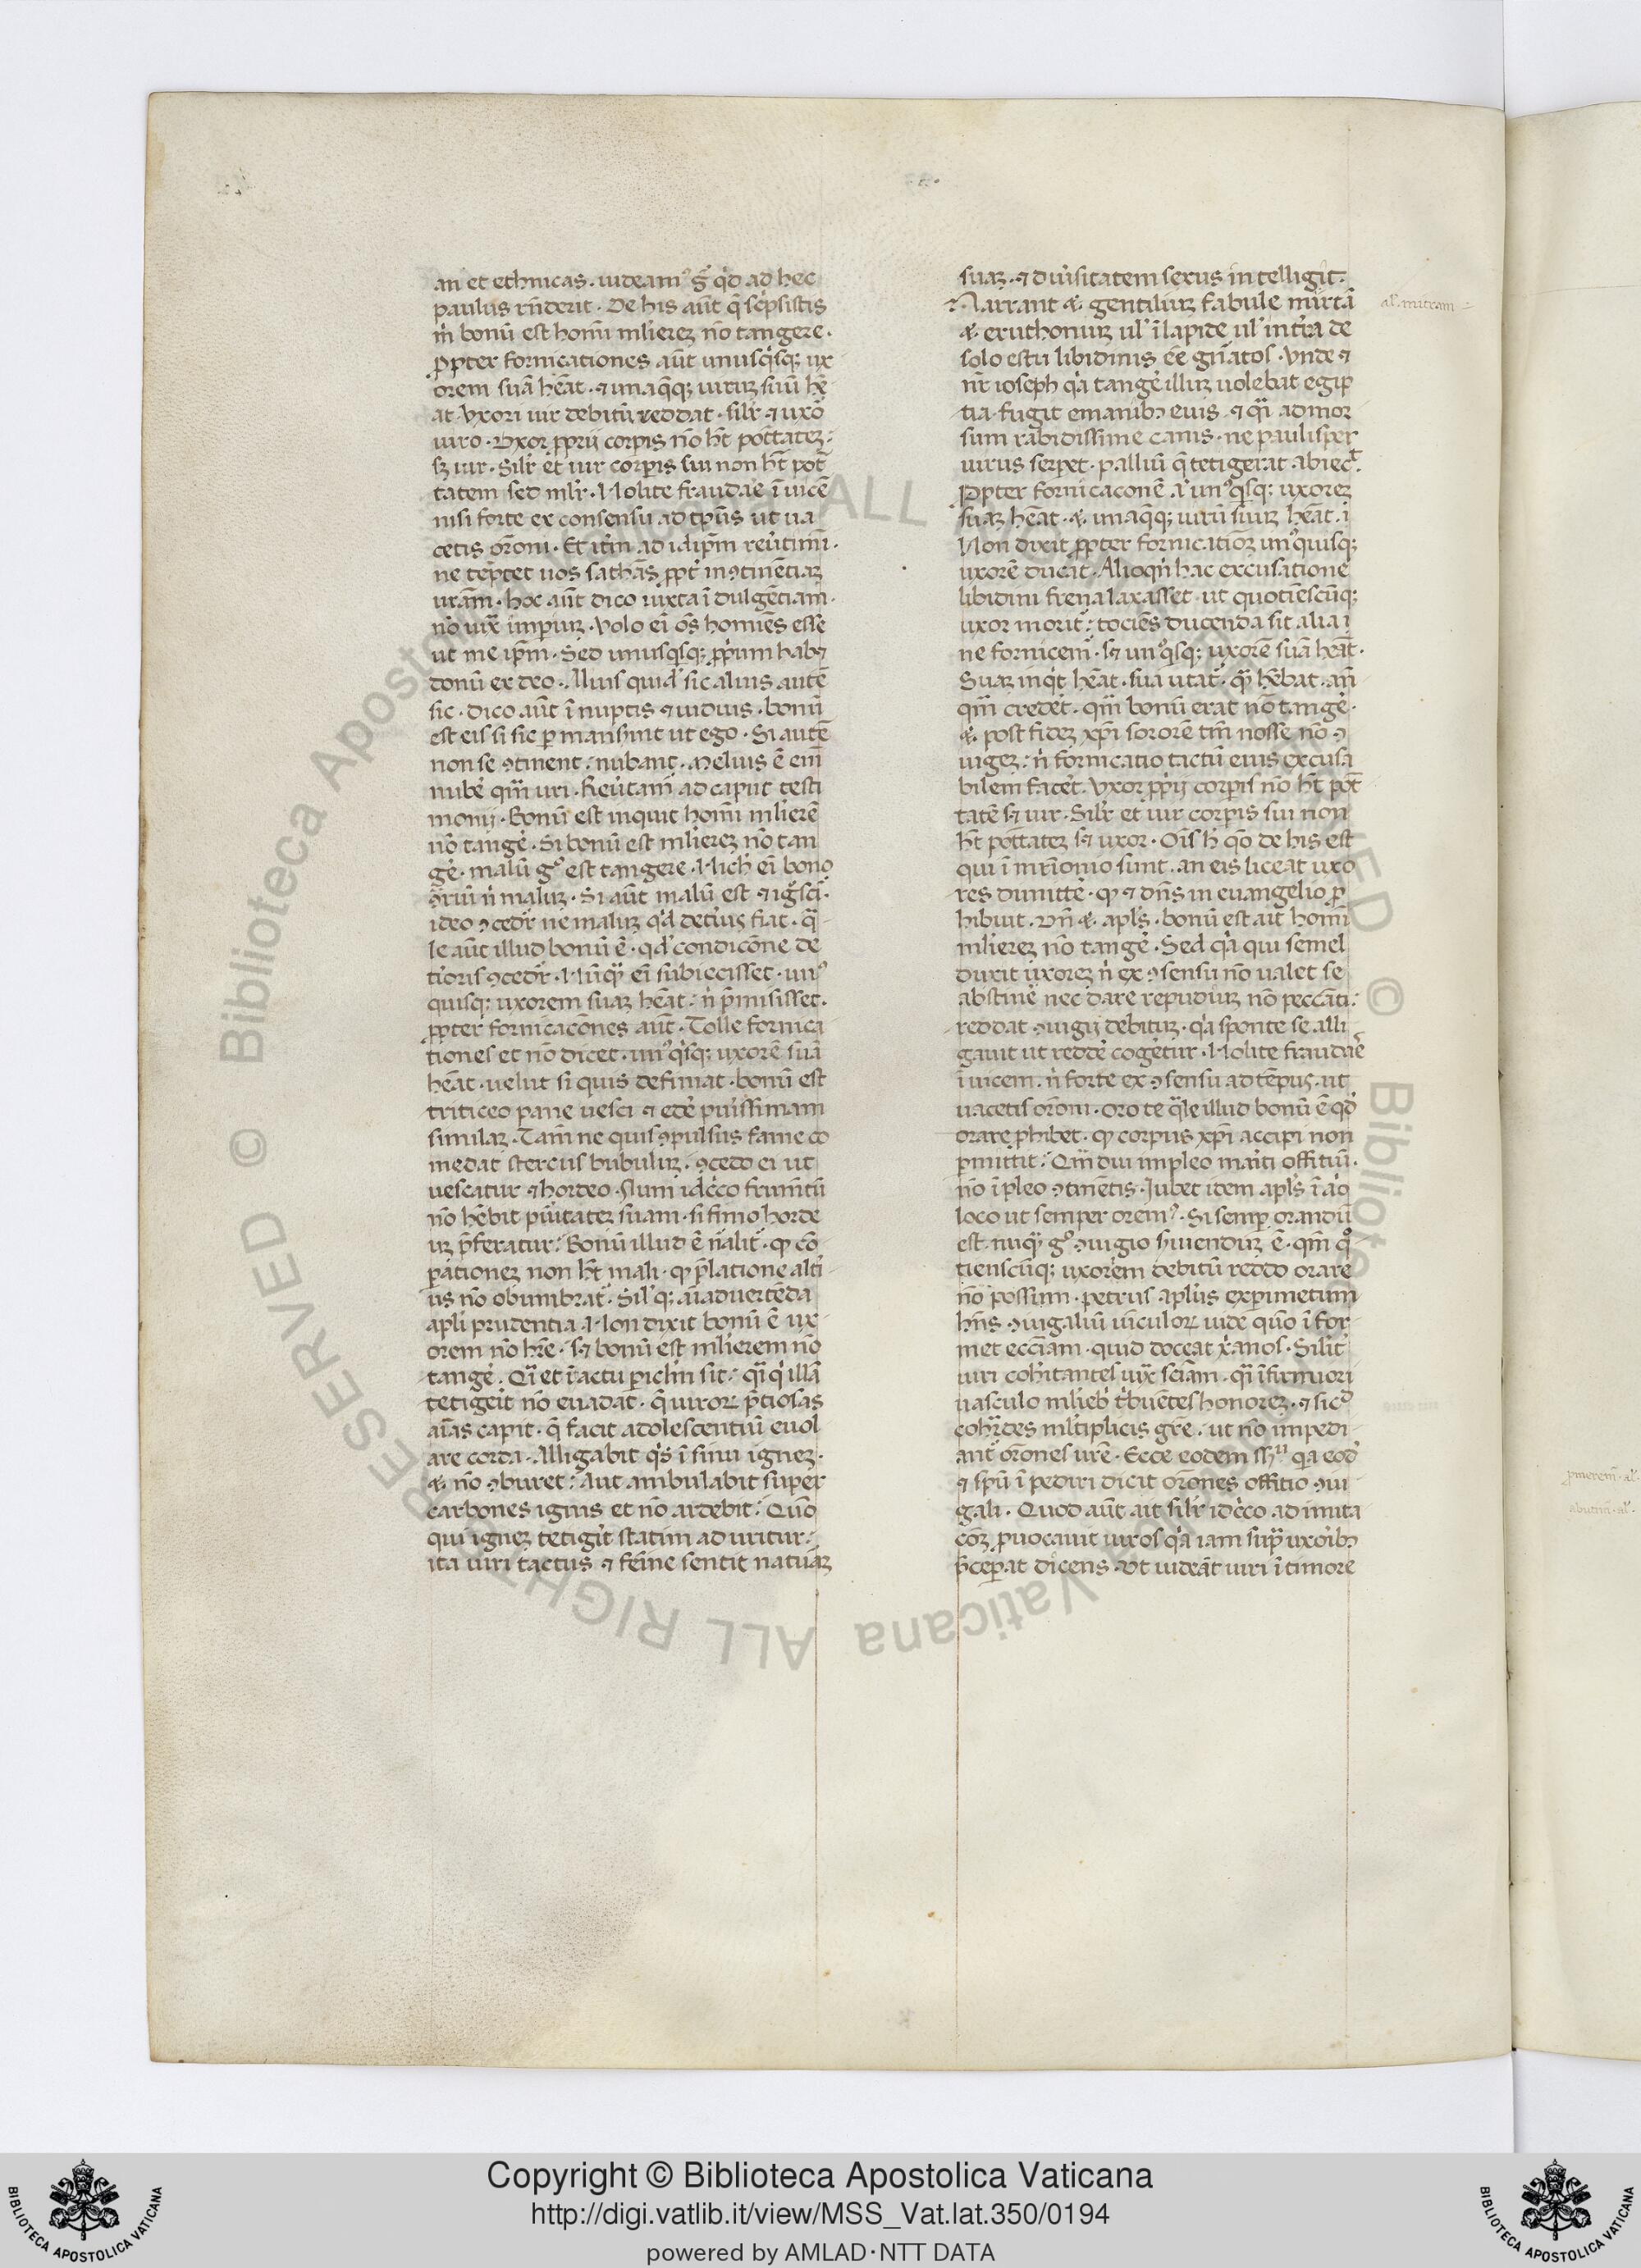 an et ethnicas. uideam⁹ g̊ qd ad hec
paulus rñderit. De his aũt q̃ scpsistis
m̃ bonũ est homĩ mlierez nõ tangere.
ꝓpter fornicationes aũt unusqsq; ux
orem suã hẽat. ⁊ unaq̃q; uiruz suũ hẽ
at. Vxori uir debitũ reddat. silr̃ ⁊ uxo
uiro. Uxor ꝓprij corpis nõ ht̃ potẽtatez:
sꝫ uir. Silr̃ et uir corpis sui non ht̃ pot̃
tatem sed mlr̃. Nolite fraudae ĩ uicẽ
nisi forte ex consensu ad tp̃us ut ua
cetis orõni. Et it̃m ad idip̃m reũtimĩ.
ne tẽptet uos sathãs ꝓpt̃ inꝯtinẽtiaz
urãm. hoc aũt dico iuxta ĩdulgẽtiam.
nõ iux̃ impiuz. Volo eĩ õs homiẽs esse
ut me ip̃m. Sed unusqsq; ꝓp̃um habꝫ
donũ ex deo. Alius quid̃ sic alius autẽ
sic. dico aũt ĩnuptis ⁊ uiduis. bonũ
est eis si sic ꝑmanserint ut ego. Si autẽ
non se ꝯtinent: nubant. Melius ẽ eĩ
nubẽ qm̃ uri. Reũtam̃ ad caput testi
monij. Bonũ est inquit homĩ mlierẽ
nõ tangẽ. Si bonũ est mlierez nõ tan
gẽ. malũ g⁰ est tangere. Nichil eĩ bono
ꝯtriũ ñ maluz. Si aũt malũ est ⁊ ig̊sci.
ideo ꝯcedr̃ ne maluz qd det̃ius fiat. q̃
le aũt illud bonũ ẽ. qd condicõne de
tioris ꝯcedr̃. Nũq̃ eĩ subiecisset. un⁹
quisq; uxorem suaz hẽat: ñ p̃misisset.
ꝓpter fornicacõnes aũt. Tolle fornica
tiones et nõ dicet. un⁹qsq; uxorẽ suã
hẽat. uelut si quis defimat. bonũ est
triticeo pane uesci ⁊ edẽ puissimam
similaz. Tam̃ ne quis ꝯpulsus fame co
medat stercus bubuluz. ꝯcedo ei ut
uescatur ⁊ hordeo. Num idc̃co frumẽtũ
nõ hẽbit puritatez suam. si fimo horde
uz p̃feratur: Bonũ illud ẽ nãlit̃. qꝫ cõ
ꝑationez non ht̃ mali. qꝫ p̃latione alti
us nõ obumbrat̃. Silq; aĩaduertẽda
apli prudentia. Non dixit bonũ ẽ ux
orem nõ hr̃e. sꝫ bonũ est mlierem nõ
tangẽ. Q̃i et ĩ tactu ꝑiclm sit: q̃i q illã
tetigeit nõ euadat. q̃ uiroꝝ p̃tiosas
aĩas capit. q̃ facit adolescentiũ euol
are corda. Alligabit qs ĩ sinu ignez.
⁊ nõ ꝯburet: Aut ambulabit super
carbones ignis et nõ ardebit: Quõ
qui ignez tetigit statim aduritur:
ita uiri tactus ⁊ feĩne sentit natuaz
suaz. ⁊ diũsitatem sexus intelligit.
Narrant ⁊ gentiliuz fabule mirtã
al' mitram
⁊ eruthoniuz ul' ĩ lapide ul' in t̃ra de
solo estu libidinis ẽe gñatos. Vnde ⁊
nr̃ ioseph qa tangẽ illuz uolebat egip
tia. fugit e manibꝰ euis. ⁊ q̃i ad mor
sum rabidissime canis. ne paulisper
uirus serpet. palliũ q̃ tetigerat abiec̃t.
Ppter fornicaconẽ .i. un⁹qsq; uxorez
suaz hẽat. ⁊ unaq̃q; uirũ suuz hẽat. i
Non dixit ꝓpter fornicatioz un⁹quisq;
uxorẽ ducat. Alioqn hac excusatione
libidini frena laxasset. ut quotiẽscũq;
uxor morit̃: tociẽs ducenda sit alia i
ne fornicem̃. sꝫ un⁹qsq; uxorẽ suã hẽat.
Suaz inqt hẽat. sua utat̃. q̃ hẽbat. añ
qm̃ credẽt. qm̃ bonũ erat nõ tangẽ.
⁊ post fidez xp̃i sororẽ tm̃ nosse nõ ꝯ
iugez: ñ fornicatio tactũ eius excusa
bilem facẽt. Vxor ꝓpij corpis nõ ht̃ pot̃
tatẽ sꝫ uir. Silr̃ et uir corpis sui non
ht̃ potẽtatez sꝫ uxor. Oĩs h̃ qo de his est
qui ĩ mr̃ionio sunt. an eis liceat uxo
res dimittẽ. qꝫ ⁊ dñs in euangelio ꝓ
hibuit. Vñ ⁊ apl's. bonũ est ait homĩ
mlierez nõ tangẽ. Sed qa qui semel
duxit uxorez ñ ex ꝯsensu nõ ualet se
abstinẽ nec dare repudiuz nõ peccãti:
reddat ꝯiugij debituz. qa sponte se alli
gauit ut reddẽ cogẽtur. Nolite fraudãe
ĩuicem. ñ forte ex ꝯsensu ad tẽpus. ut
uacetis orõni. Oro te q̃le illud bonũ ẽ qd
orare ꝓhibet. qꝫ corpus xp̃i accipi non
ꝑmittit: Qm̃diu impleo mariti offitiũ.
nõ ĩpleo ꝯtinẽtis. Iubet idem apl's ĩ aliq
loco ut semper orem⁹. Si semꝑ orandũ
est. nuq̃ g⁰ ꝯiugio seruienduz ẽ. qm̃ quo
tienscũq; uxorem debitũ reddo orare
nõ possum. petrus aplus experimetum
hñs ꝯiugaliũ uĩculoꝝ uide quõ ĩfor
met ecc̃iam. quid doceat xr̃anos. Silit̃
uiri cohitantes iux̃ sciãm. q̃i ĩfirmiori
uasculo mliebi tbuẽtes honorez. ⁊ sic
cohr̃des mltiplicis gr̃e. ut nõ impedi
ant̃ orõnes ur̃e. Ecce eodem ssu qa eod
⁊ sp̃u ĩpediri dicit orõnes offitio ꝯiu
gali. Quod aũt ait silr̃ idc̃co ad imita
cõz ꝓuocauit uiros qa iam supra uxoribꝰ
p̃ceꝑat dicens. Vt uideãt uiri ĩ timore
Copyright © Biblioteca Apostolica Vaticana
http://digi.vatlib.it/view/MSS_Vat.lat.350/0194
powered by AMLAD·NTT DATA